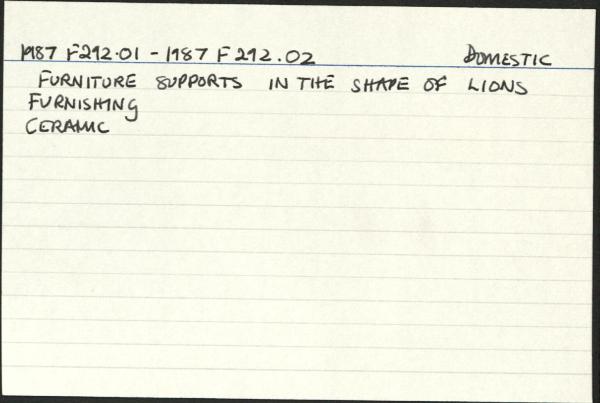 1987 F292.01 - 1987 F292.02 DOMESTIC
FURNITURE SUPPORTS IN THE SHAPE OF LIONS
FURNISHING
CERAMIC